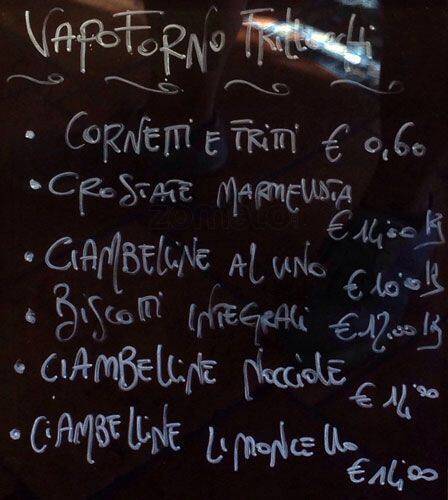 VAPOFORNO Frittuati
• CORNETTI E FRITTI € 0,60
• CROSTATE MARMELLATA
€ 14,00 Kg
• CIAMBELLINE AL VINO € 10,00 Kg
• BISCOTTI INTEGRALI € 12,00 Kg
• CIAMBELLINE NOCCIOLE
€ 14,00
• CIAMBELLINE LIMONCELLO
€ 14,00
zomato